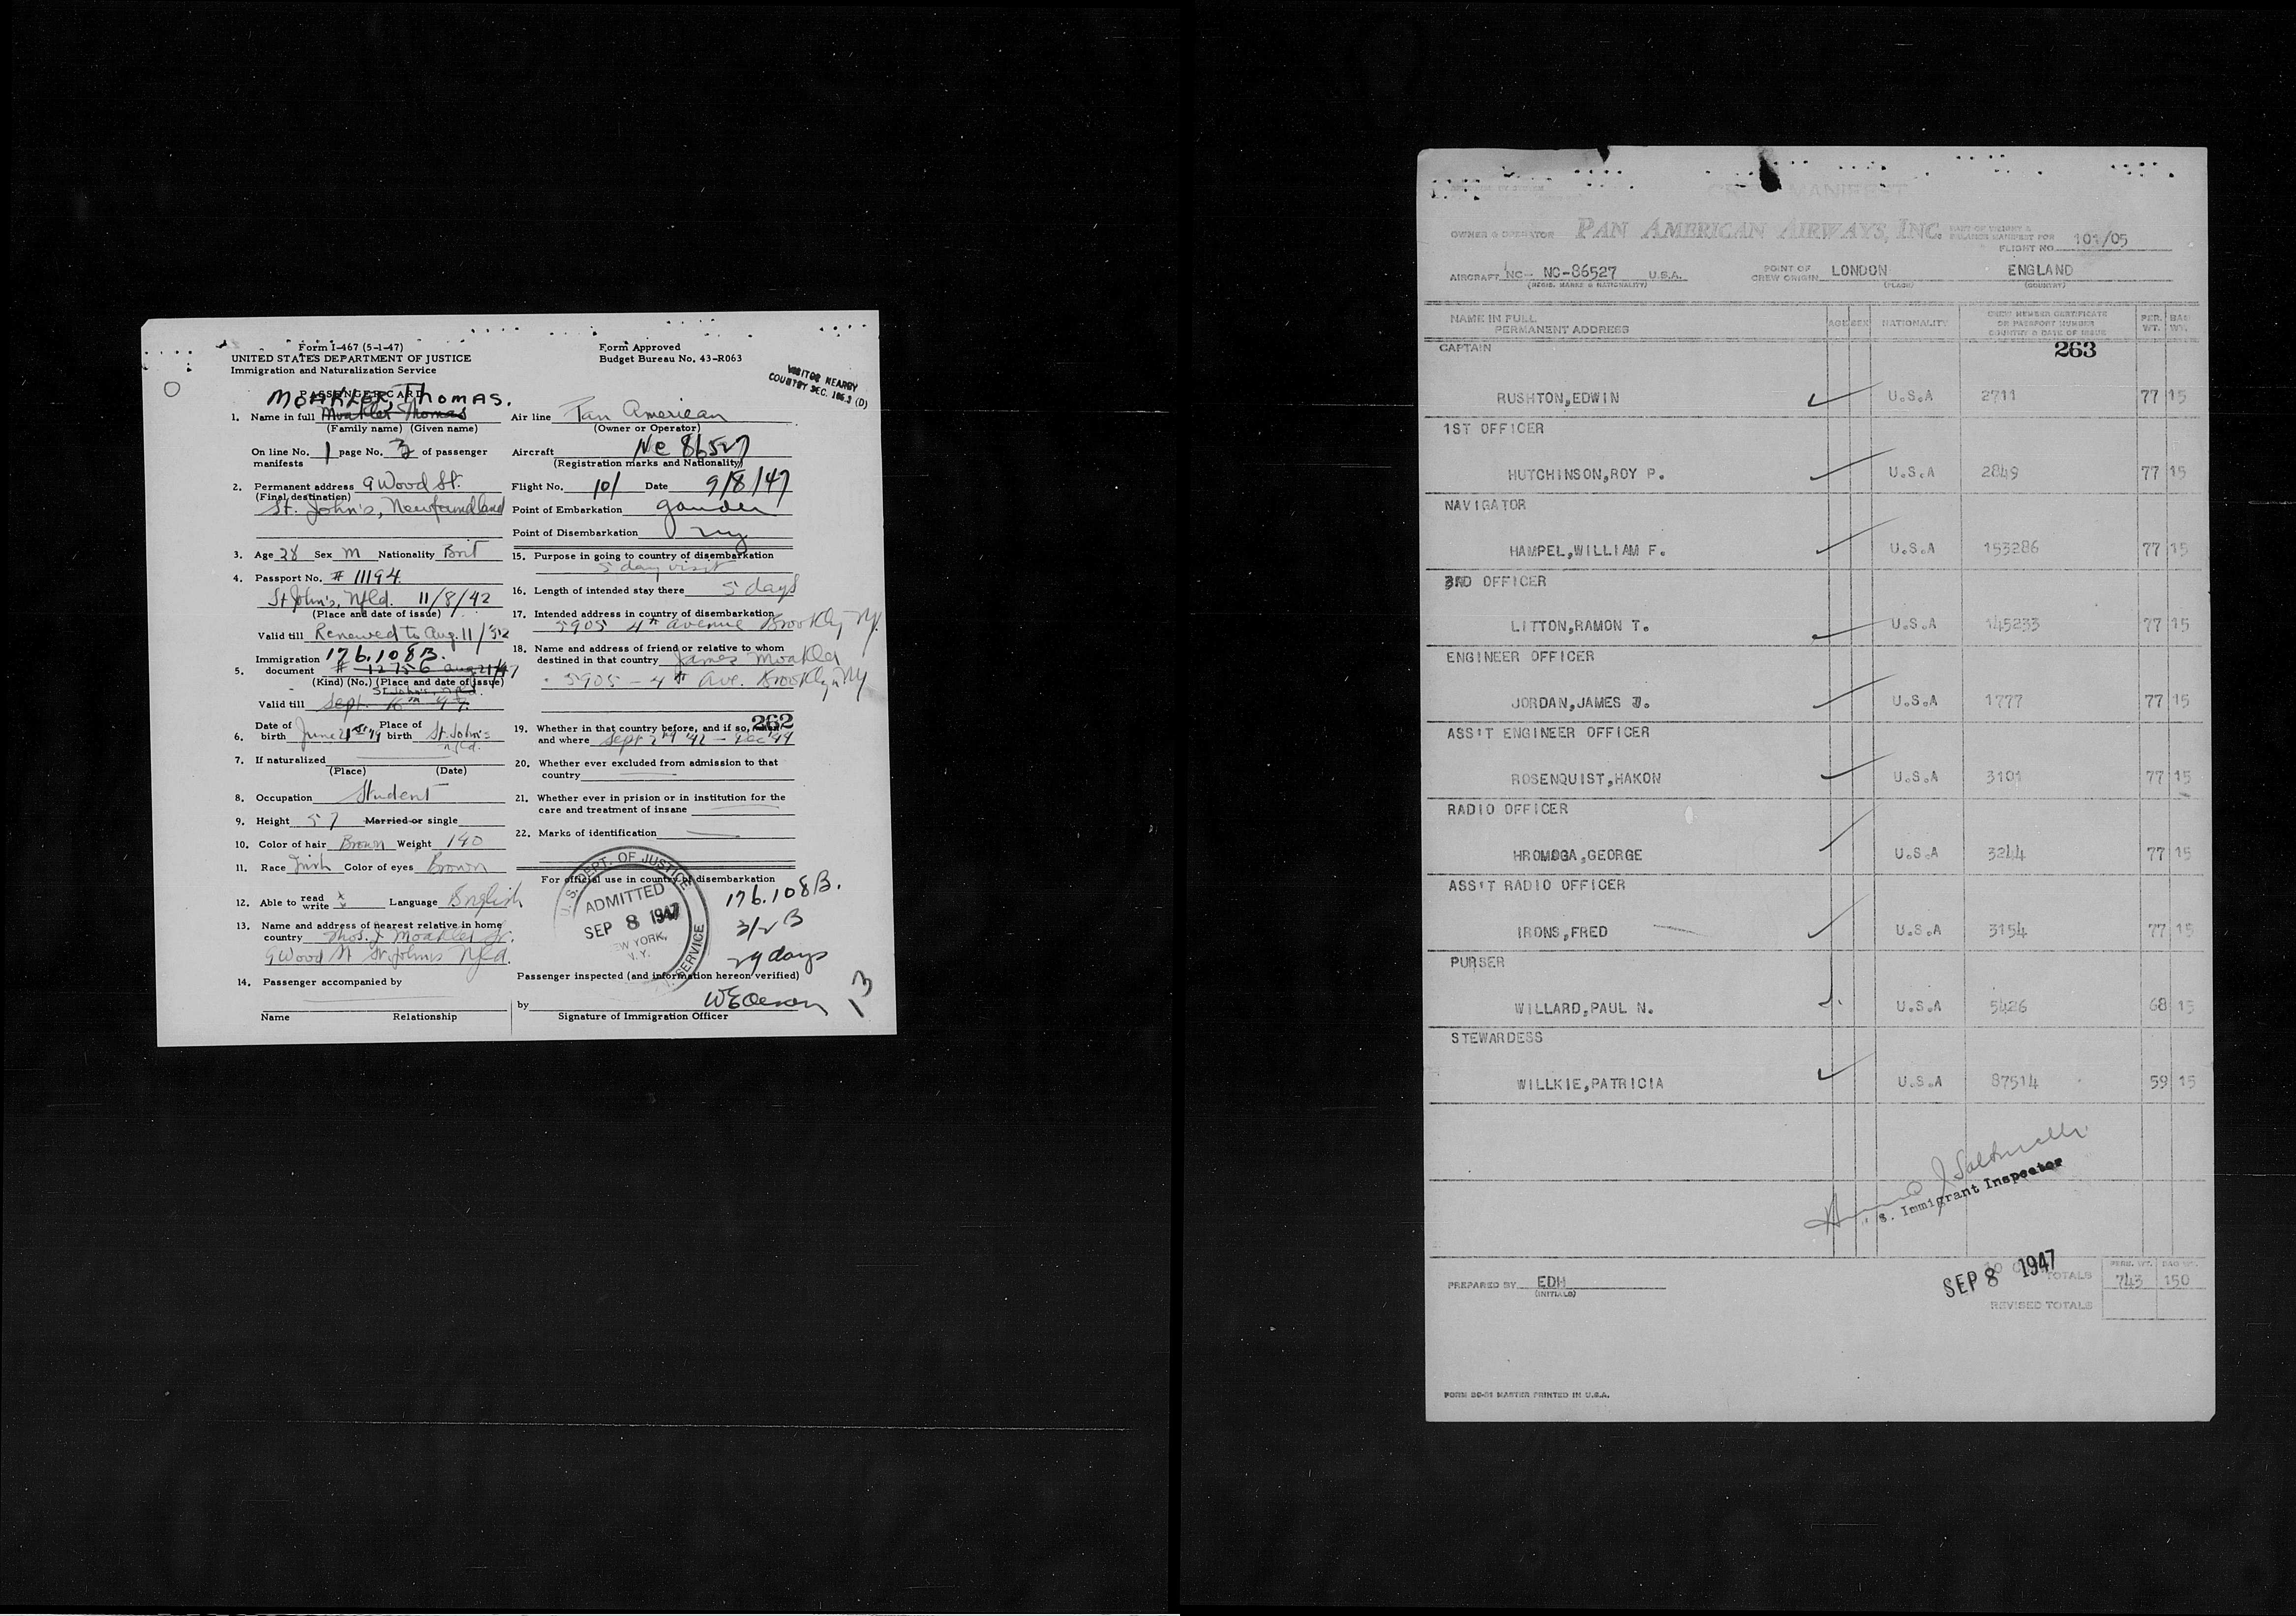 Form I-467 (5-1-47)
UNITED STATES DEPARTMENT OF JUSTICE
Immigration and Naturalization Service
Form Approved
Budget Bureau No. 43-R063
VISITOR NEARBY
COUNTRY SEC. (D)
PASSENGER CARD
MOAKLER, THOMAS.
1. Name in full Moakler Thomas
(Family name) (Given name)
On line No. 1 page No. 3 of passenger
manifests
2. Permanent address 9 Wood St.
(Final destination)
St. John's, Newfoundland
3. Age 28 Sex M Nationality Brit
4. Passport No. # 11194
St John's, Nfld. 11/8/42
(Place and date of issue)
Valid till Renewed to Aug. 11/52
Immigration 176.108B.
5. document # 12756 aug 21/47
(Kind) (No.) (Place and date of issue)
St John's, Nfld.
Valid till Sept. 16th 47.
6. Date of birth June 21st Place of birth St. John's
Nfld.
7. If naturalized
(Place) (Date)
8. Occupation Student
9. Height 5 7 Married or single
10. Color of hair Brown Weight 140
11. Race Irish Color of eyes Brown
12. Able to read write Language English
13. Name and address of nearest relative in home
country Thos. J. Moakler
9 Wood St St. John's Nfld.
14. Passenger accompanied by
Name Relationship
Air line Pan American
(Owner or Operator)
Aircraft NC 86527
(Registration marks and Nationality)
Flight No. 101 Date 9/8/47
Point of Embarkation Gander
Point of Disembarkation NY
15. Purpose in going to country of disembarkation
5 day visit
16. Length of intended stay there 5 days
17. Intended address in country of disembarkation
5905 4th avenue Brooklyn NY.
18. Name and address of friend or relative to whom
destined in that country James Moakler
5905 - 4th Ave. Brooklyn NY
262
19. Whether in that country before, and if so, when
and where Sept '42 - Dec '44
20. Whether ever excluded from admission to that
country
21. Whether ever in prision or in institution for the
care and treatment of insane
22. Marks of identification
For official use in country of disembarkation
U.S. DEPT. OF JUSTICE
ADMITTED
SEP 8 1947
NEW YORK,
N.Y.
SERVICE
176.108B.
3/2 B
29 days
Passenger inspected (and information hereon verified)
by
Signature of Immigration Officer
13
CREW MANIFEST
OWNER & OPERATOR PAN AMERICAN AIRWAYS, INC. PART OF WEIGHT &
BALANCE MANIFEST FOR
FLIGHT NO. 101/05
AIRCRAFT NC- NC-86527 U.S.A. POINT OF CREW ORIGIN LONDON ENGLAND
(REGIS. MARKS & NATIONALITY) (PLACE) (COUNTRY)
NAME IN FULL
PERMANENT ADDRESS AGE SEX NATIONALITY CREW MEMBER CERTIFICATE
OR PASSPORT NUMBER
COUNTRY & DATE OF ISSUE PER. WT. BAG WT.
CAPTAIN 263
RUSHTON,EDWIN U.S.A 2711 77 15
1ST OFFICER
HUTCHINSON,ROY P. U.S.A 2849 77 15
NAVIGATOR
HAMPEL,WILLIAM F. U.S.A 153286 77 15
2ND OFFICER
LITTON,RAMON T. U.S.A 145233 77 15
ENGINEER OFFICER
JORDAN,JAMES J. U.S.A 1777 77 15
ASS'T ENGINEER OFFICER
ROSENQUIST,HAKON U.S.A 3101 77 15
RADIO OFFICER
HROMOGA,GEORGE U.S.A 3244 77 15
ASS'T RADIO OFFICER
IRONS,FRED U.S.A 3154 77 15
PURSER
WILLARD,PAUL N. U.S.A 5426 68 15
STEWARDESS
WILLKIE,PATRICIA U.S.A 87514 59 15
S. Immigrant Inspector
PREPARED BY EDH
(INITIALS)
SEP 8 1947
TOTALS 743 150
REVISED TOTALS
FORM MASTER PRINTED IN U.S.A.